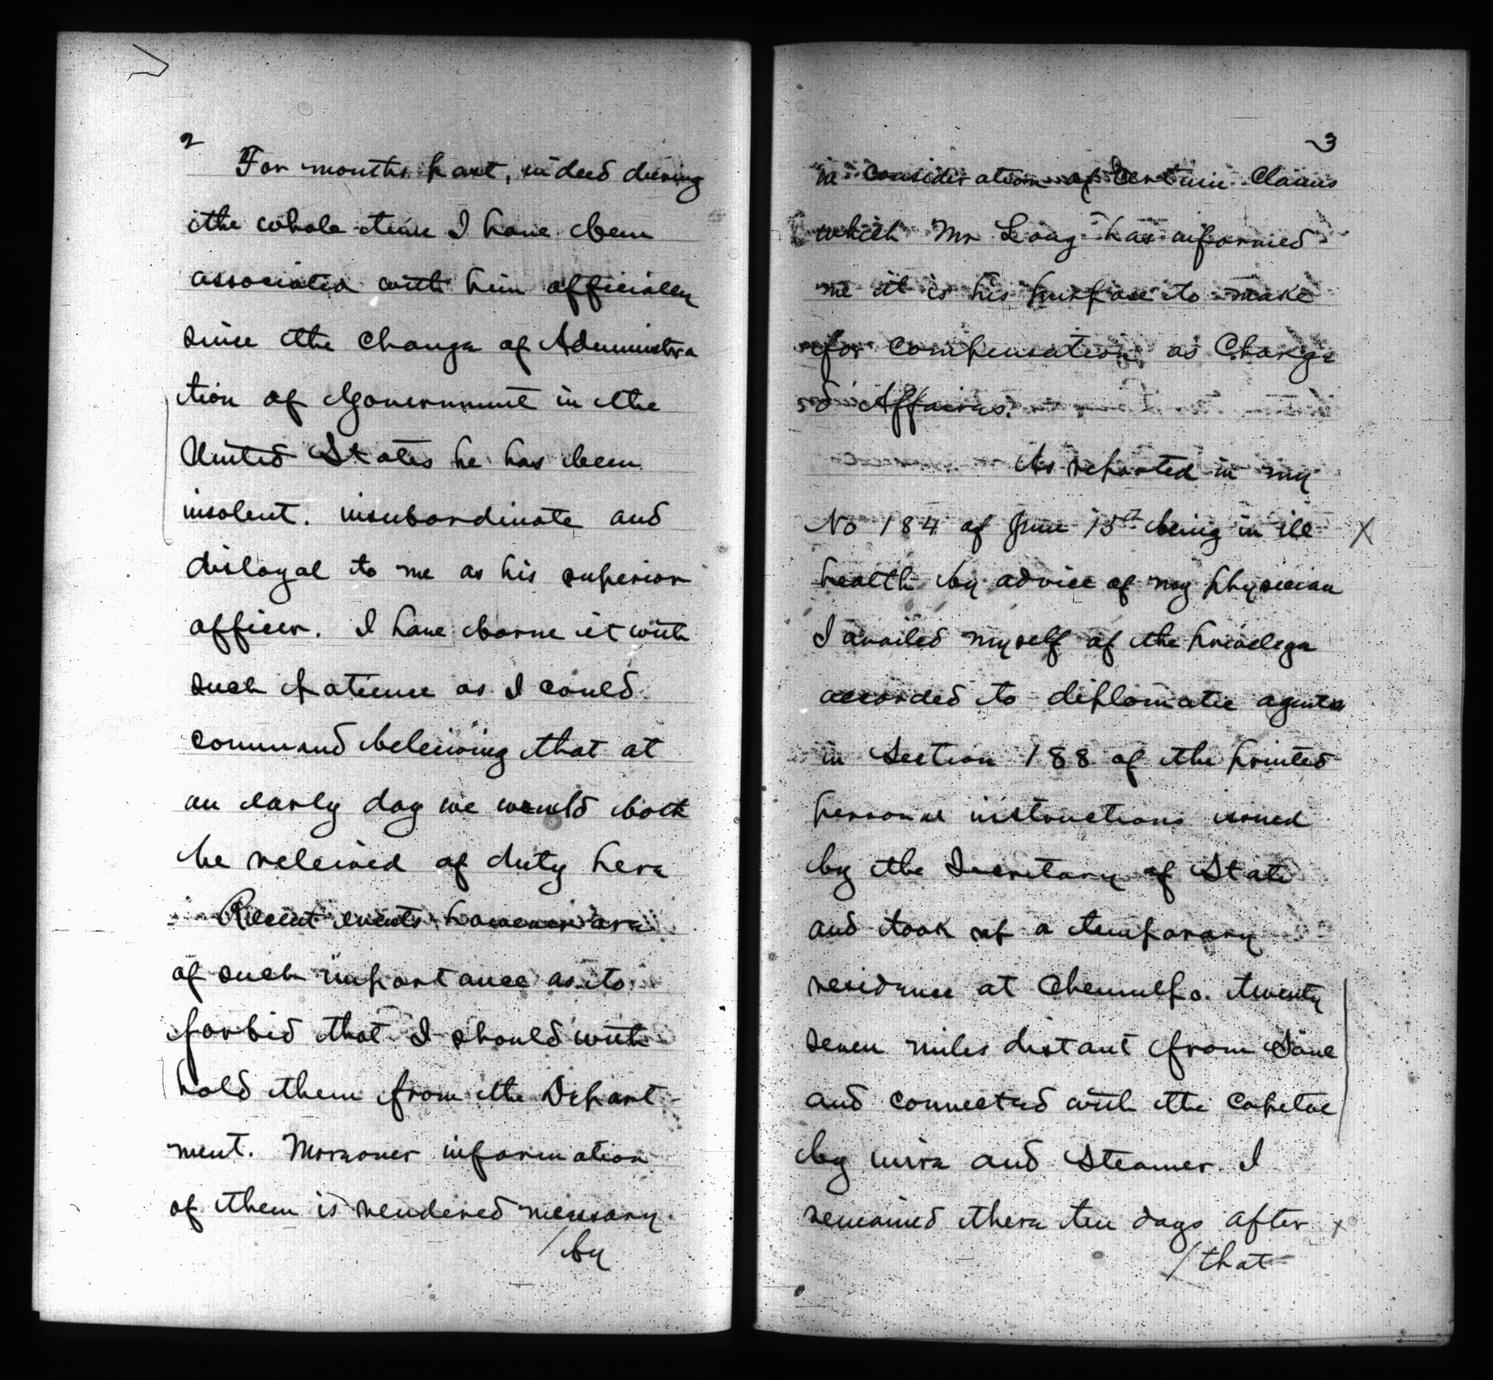 2
For months past, indeed during
the whole time I have been
associated with him officially
since the change of Administra
tion of Government in the
United States he has been
insolent. insubordinate and
disloyal to me as his superior
officer. I have borne it with
such patience as I could
command beleiving that at
an early day we would both
be releived of duty here
Recent events however are
of such importance as to
forbid that I should with
hold them from the Depart-
ment. Moreover information
of them is rendered necessary.
/by
3
in consideration of certain claims
which Mr Long has informed
me it is his purpose to make
for compensation as Charge
d'Affaires.
As reported in my
No 184 of June 15th being in ill X
health by advice of my physician
I availed myself of the priveledge
accorded to diplomatic agents
in Section 188 of the printed
personal instructions issued
by the Secretary of State
and took up a temporary
residence at Chemulpo. twenty
seven miles distant from Söul
and connected with the capital
by wire and steamer. I
remained there ten days after x
/that